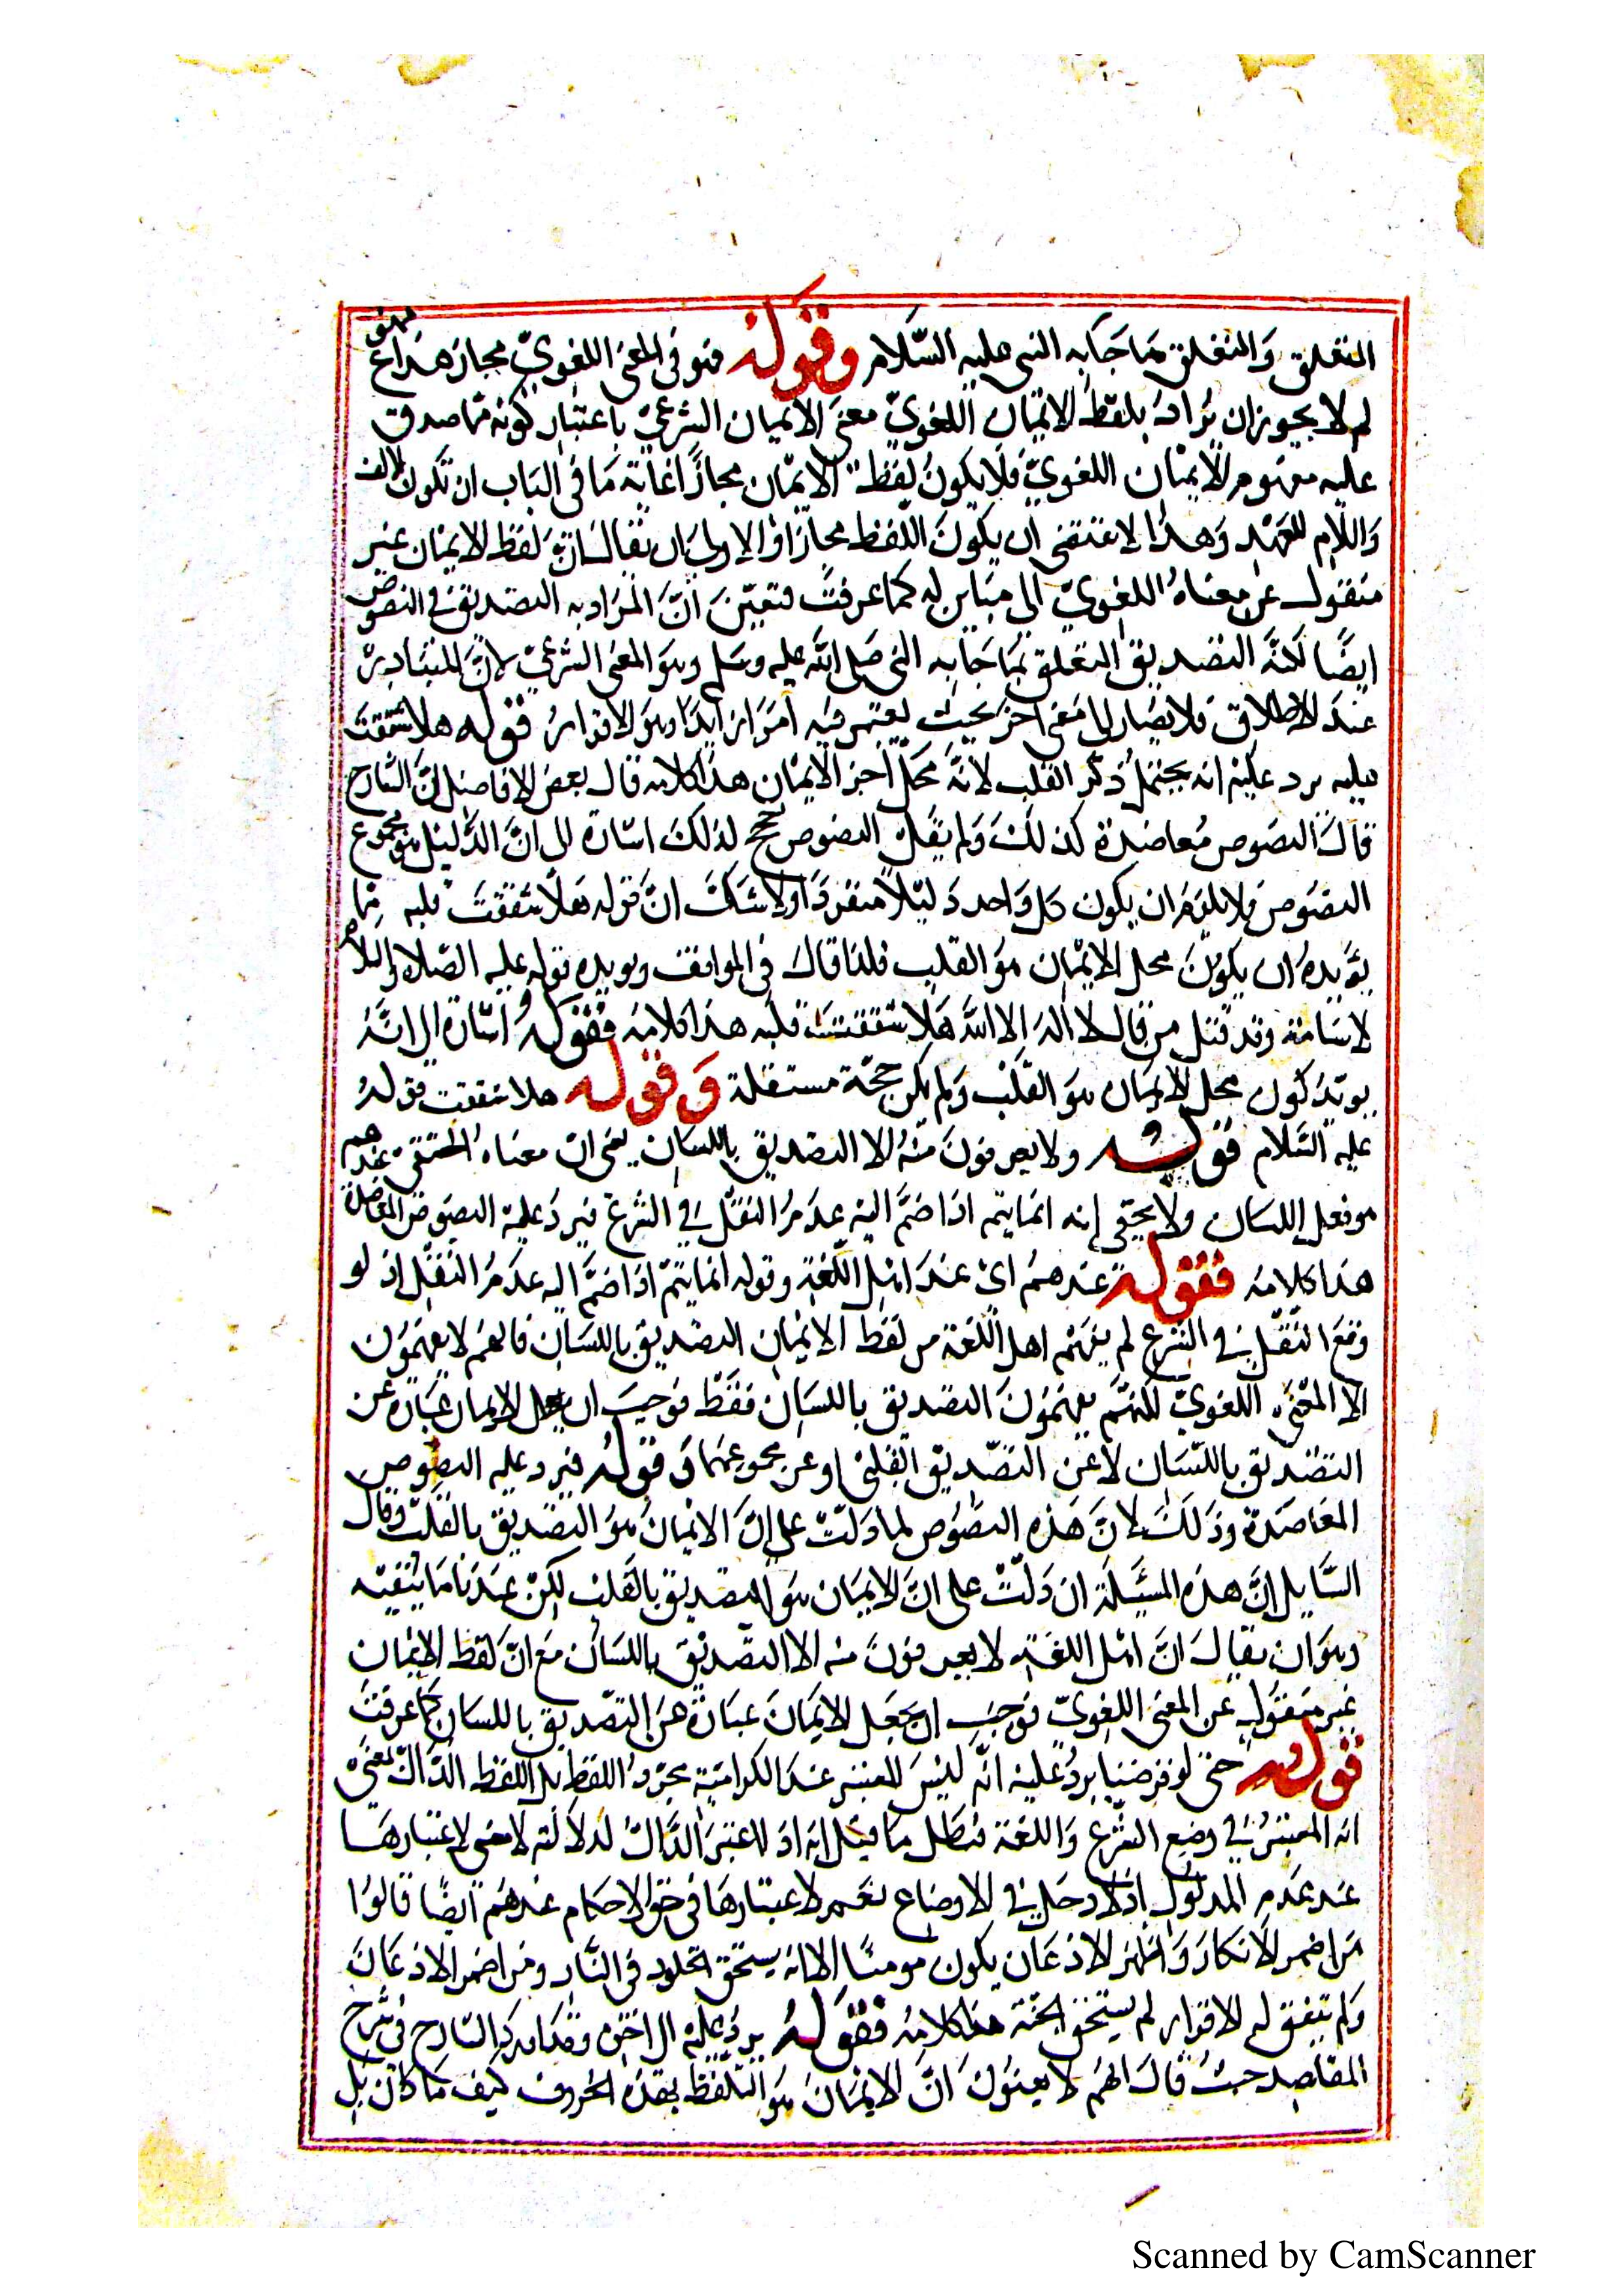 المتعلق والمتعلق بما جاء به النبي عليه السلام وقوله فهو في المعنى اللغوي مجاز هذا
لم لا يجوز ان يراد بلفظ الايمان اللغوي معنى الايمان الشرعي باعتبار كونه مما صدق
عليه مفهوم الايمان اللغوي فلا يكون لفظ الايمان مجازا غاية ما في الباب ان تكون الالف
واللام للعهد وهذا لا يقتضي ان يكون اللفظ مجازا والاولى ان يقال ان لفظ الايمان غير
منقول عن معناه اللغوي الى مباين له كما عرفت فتعين ان المراد به التصديق في النصوص
ايضا لانه التصديق المتعلق بما جاء به النبي صلى الله عليه وسلم وهو المعنى الشرعي لان المتبادر
عند الاطلاق فلا يصار الى معنى اخر بحيث يعتبر فيه امر زائدا وهو الاقرار قوله هلا شققت
قلبه يرد عليه انه يحتمل ذكر القلب لانه محل جزء الايمان هذا كلامه قال بعض الافاضل ان الشارح
قال النصوص معاضدة كذلك ولم يقل النصوص حجج لذلك اشارة الى ان الدليل هو مجموع
النصوص ولا يلزم ان يكون كل واحد دليلا منفردا ولا شك ان قوله هلا شققت قلبه مما
يؤيده ان يكون محل الايمان هو القلب فلذا قال في المواقف ويؤيده قوله عليه الصلاة والسلام
لاسامة وقد قتل من قال لا اله الا الله هلا شققت قلبه هذا كلامه فقوله اشارة الى انه
يؤيد كون محل الايمان هو القلب ولم يكن حجة مستقلة وقوله هلا شققت قوله
عليه السلام قوله ولا يعرفون منه الا التصديق باللسان يعني ان معناه الحقيقي عندهم
هو فعل اللسان ولا يخفى انه انما يتم اذا ضم اليه عدم النقل في الشرع فيرد عليه النصوص المعاضدة
هذا كلامه فقوله عندهم اي عند اهل اللغة وقوله انما يتم اذا ضم اليه عدم النقل اذ لو
وقع النقل في الشرع لم يفهم اهل اللغة من لفظ الايمان التصديق باللسان فانهم لا يفهمون
الا المعنى اللغوي لكنهم يفهمون التصديق باللسان فقط فوجب ان يجعل الايمان عبارة عن
التصديق باللسان لا عن التصديق القلبي او عن مجموعهما وقوله فيرد عليه النصوص
المعاضدة وذلك لان هذه النصوص لما دلت على ان الايمان هو التصديق بالقلب وقال
السايل ان هذه المسئلة ان دلت على ان الايمان هو التصديق بالقلب لكن عندنا ما ينفيه
وهو ان يقال ان اهل اللغة لا يعرفون منه الا التصديق باللسان مع ان لفظ الايمان
غير منقول عن المعنى اللغوي فوجب ان يجعل الايمان عبارة عن التصديق باللسان كما عرفت
قوله حتى لو فرضنا يرد عليه انه ليس المعتبر عند الكرامية مجرد اللفظ بل اللفظ الدال بمعنى
انه المعتبر في وضع الشرع واللغة فبطل ما قيل انه اذا اعتبر الدال لدلالته لا معنى لاعتبارها
عند عدم المدلول اذ لا دخل في الاوضاع نعم لاعتبارها في حق الاحكام عندهم ايضا قالوا
من اضمر الانكار واظهر الاذعان يكون مومنا الا انه يستحق الخلود في النار ومن اضمر الاذعان
ولم يتفق له الاقرار لم يستحق الجنة هذا كلامه فقوله يرد عليه الى اخره وقد ذكر الشارح في شرح
المقاصد حيث قال انهم لا يعنون ان الايمان هو التلفظ بهذه الحروف كيف ما كان بل
Scanned by CamScanner